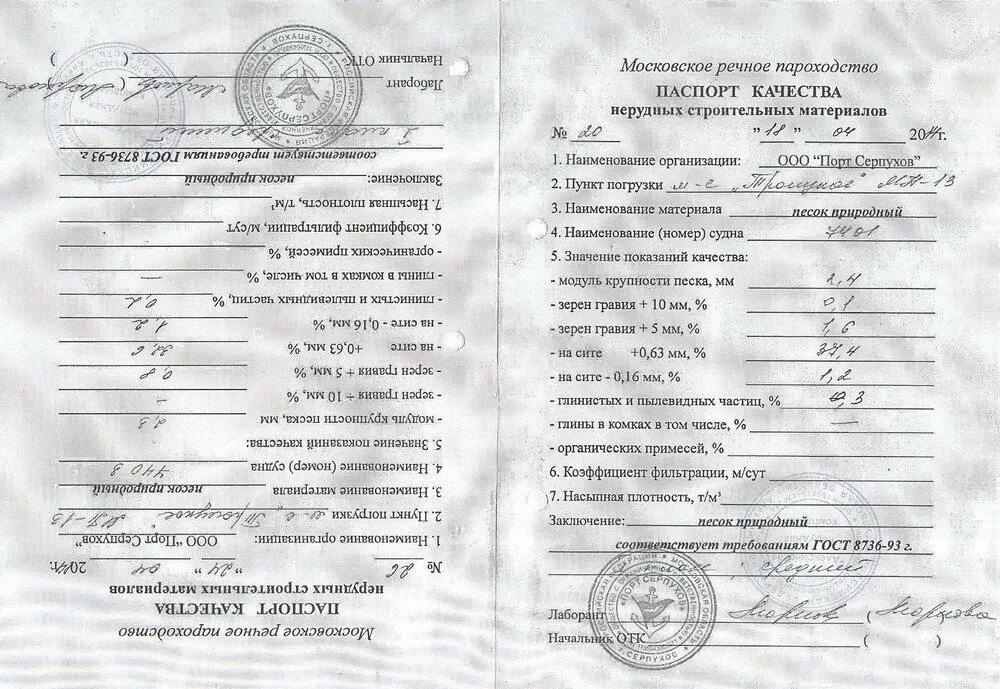 Московское речное пароходство
ПАСПОРТ КАЧЕСТВА
нерудных строительных материалов
№ 20 "18" 04 2014г.
1. Наименование организации: ООО "Порт Серпухов"
2. Пункт погрузки м-е "Троицкое" МП-13
3. Наименование материала песок природный
4. Наименование (номер) судна 7401
5. Значение показаний качества:
- модуль крупности песка, мм 2,4
- зерен гравия + 10 мм, % 0,1
- зерен гравия + 5 мм, % 1,6
- на сите +0,63 мм, % 37,4
- на сите - 0,16 мм, % 1,2
- глинистых и пылевидных частиц, % 0,3
- глины в комках в том числе, % —
- органических примесей, %
6. Коэффициент фильтрации, м/сут
7. Насыпная плотность, т/м³
Заключение: песок природный
соответствует требованиям ГОСТ 8736-93 г.
средний
Лаборант
Начальник ОТК ( )
"ПОРТ СЕРПУХОВ"
Г. СЕРПУХОВ
Московское речное пароходство
ПАСПОРТ КАЧЕСТВА
нерудных строительных материалов
№ 26 "24" 04 2014г.
1. Наименование организации: ООО "Порт Серпухов"
2. Пункт погрузки м-е "Троицкое" МП-13
3. Наименование материала песок природный
4. Наименование (номер) судна
5. Значение показаний качества:
- модуль крупности песка, мм 2,3
- зерен гравия + 10 мм, % –
- зерен гравия + 5 мм, % 0,8
- на сите +0,63 мм, % 32,6
- на сите - 0,16 мм, % 1,2
- глинистых и пылевидных частиц, % 0,2
- глины в комках в том числе, % —
- органических примесей, %
6. Коэффициент фильтрации, м/сут
7. Насыпная плотность, т/м³
Заключение: песок природный
соответствует требованиям ГОСТ 8736-93 г.
средний
Лаборант
Начальник ОТК ( )
"ПОРТ СЕРПУХОВ"
Г. СЕРПУХОВ